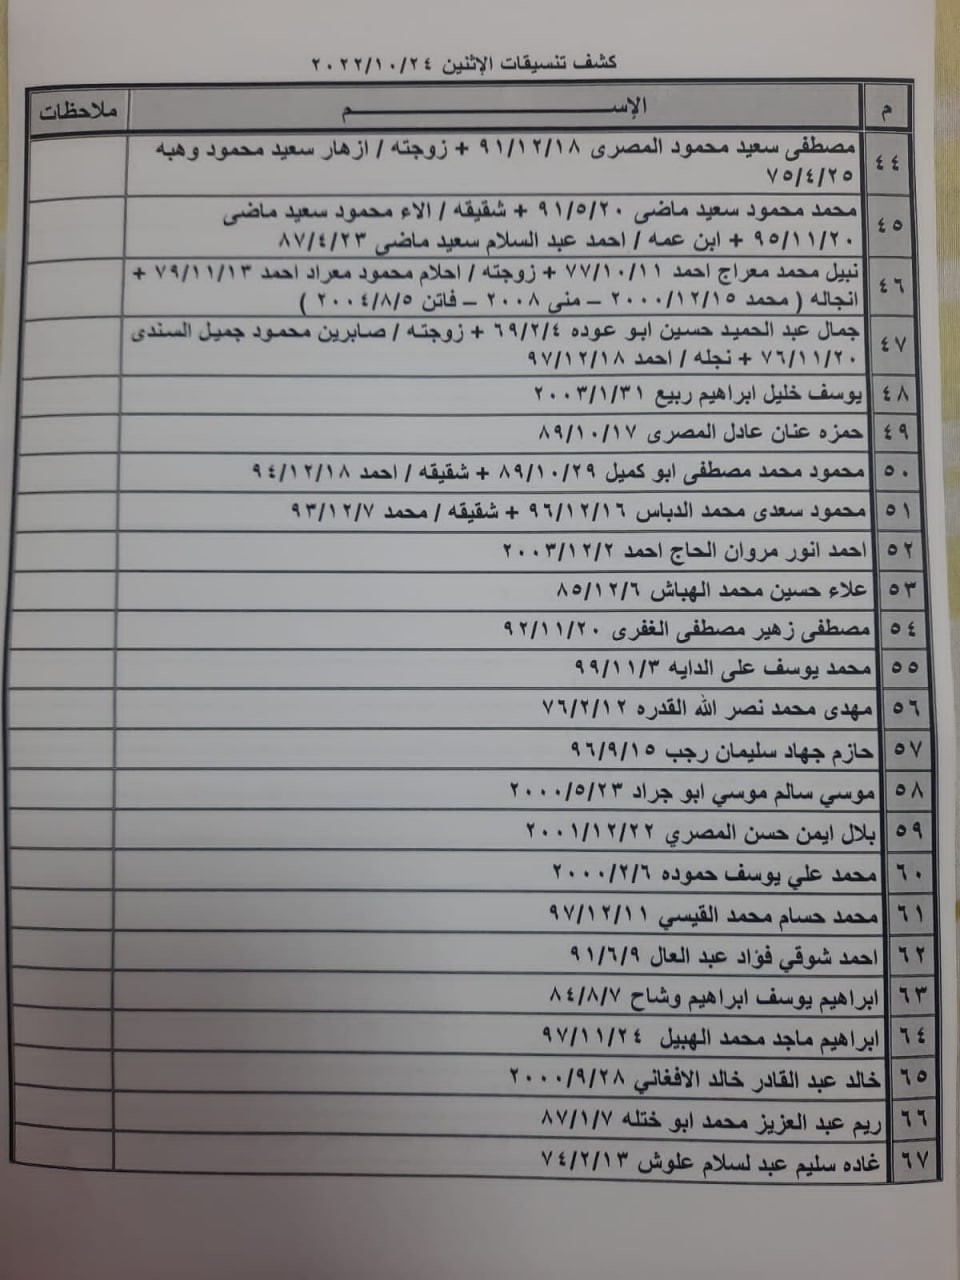 كشف تنسيقات الإثنين ٢٠٢٢/١٠/٢٤
م الإســـــــــم ملاحظات
٤٤ مصطفى سعيد محمود المصرى ٩١/١٢/١٨ + زوجته / ازهار سعيد محمود وهبه
٧٥/٤/٢٥
٤٥ محمد محمود سعيد ماضى ٩١/٥/٢٠ + شقيقه / الاء محمود سعيد ماضى
٩٥/١١/٢٠ + ابن عمه / احمد عبد السلام سعيد ماضى ٨٧/٤/٢٣
٤٦ نبيل محمد معراج احمد ٧٧/١٠/١١ + زوجته / احلام محمود معراد احمد ٧٩/١١/١٣ +
انجاله ( محمد ٢٠٠٠/١٢/١٥ – منى ٢٠٠٨ – فاتن ٢٠٠٤/٨/٥ )
٤٧ جمال عبد الحميد حسين ابو عوده ٦٩/٢/٤ + زوجته / صابرين محمود جميل السندى
٧٦/١١/٢٠ + نجله / احمد ٩٧/١٢/١٨
٤٨ يوسف خليل ابراهيم ربيع ٢٠٠٣/١/٣١
٤٩ حمزه عنان عادل المصرى ٨٩/١٠/١٧
٥٠ محمود محمد مصطفى ابو كميل ٨٩/١٠/٢٩ + شقيقه / احمد ٩٤/١٢/١٨
٥١ محمود سعدى محمد الدباس ٩٦/١٢/١٦ + شقيقه / محمد ٩٣/١٢/٧
٥٢ احمد انور مروان الحاج احمد ٢٠٠٣/١٢/٢
٥٣ علاء حسين محمد الهباش ٨٥/١٢/٦
٥٤ مصطفى زهير مصطفى الغفرى ٩٢/١١/٢٠
٥٥ محمد يوسف على الدايه ٩٩/١١/٣
٥٦ مهدى محمد نصر الله القدره ٧٦/٢/١٢
٥٧ حازم جهاد سليمان رجب ٩٦/٩/١٥
٥٨ موسي سالم موسي ابو جراد ٢٠٠٠/٥/٢٣
٥٩ بلال ايمن حسن المصري ٢٠٠١/١٢/٢٢
٦٠ محمد علي يوسف حموده ٢٠٠٠/٢/٦
٦١ محمد حسام محمد القيسي ٩٧/١٢/١١
٦٢ احمد شوقي فؤاد عبد العال ٩١/٦/٩
٦٣ ابراهيم يوسف ابراهيم وشاح ٨٤/٨/٧
٦٤ ابراهيم ماجد محمد الهبيل ٩٧/١١/٢٤
٦٥ خالد عبد القادر خالد الافغاني ٢٠٠٠/٩/٢٨
٦٦ ريم عبد العزيز محمد ابو ختله ٨٧/١/٧
٦٧ غاده سليم عبد لسلام علوش ٧٤/٢/١٣